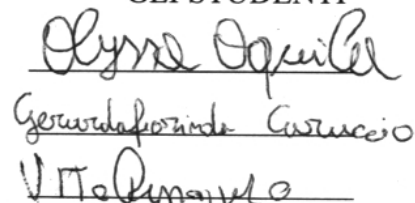 GLI STUDENTI
Olyssa Aquila
Gerardafiorinda Caruccio
Vito